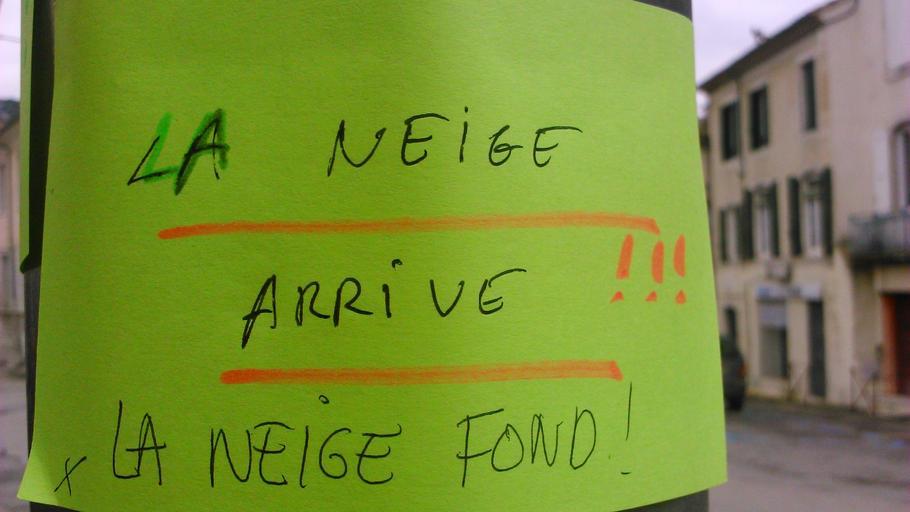 LA NEIGE
ARRIVE !!!
x LA NEIGE FOND!